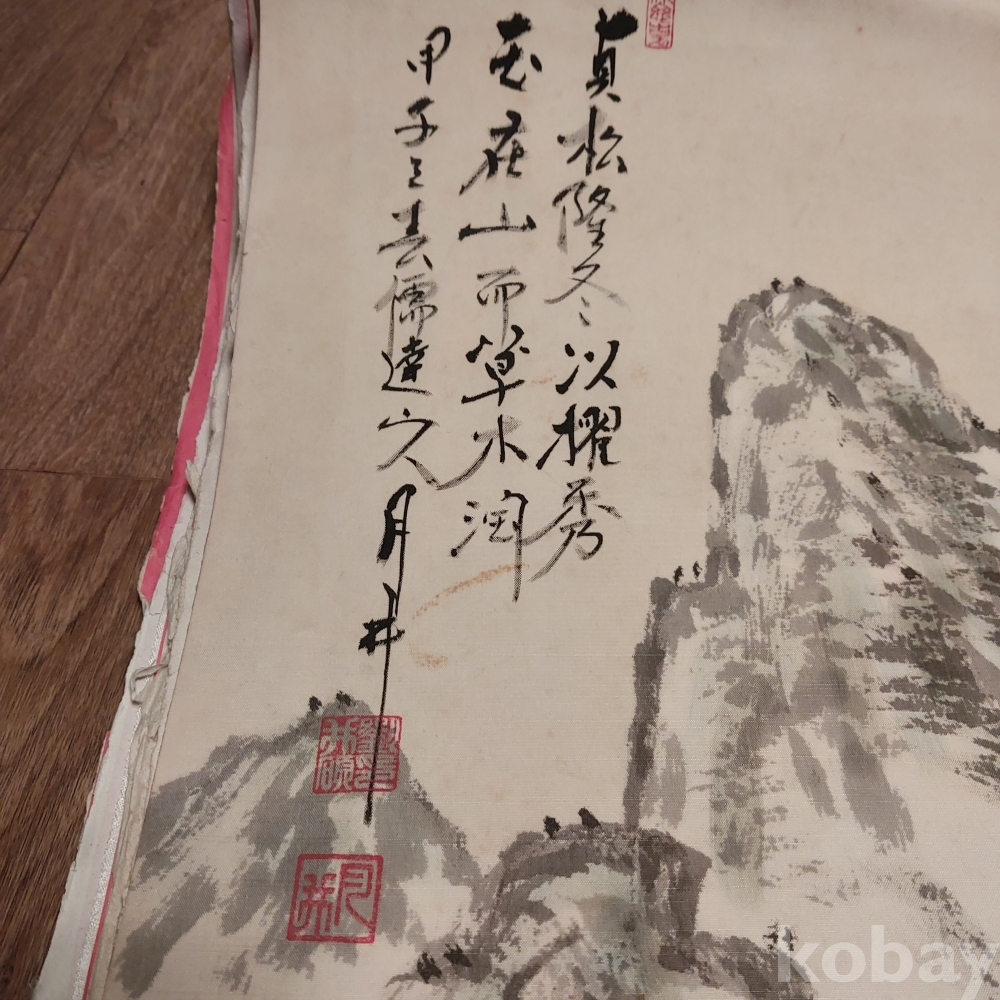 貞松隆冬以擢秀
玉在山而草木潤
甲子之春儒達山人月井
kobay